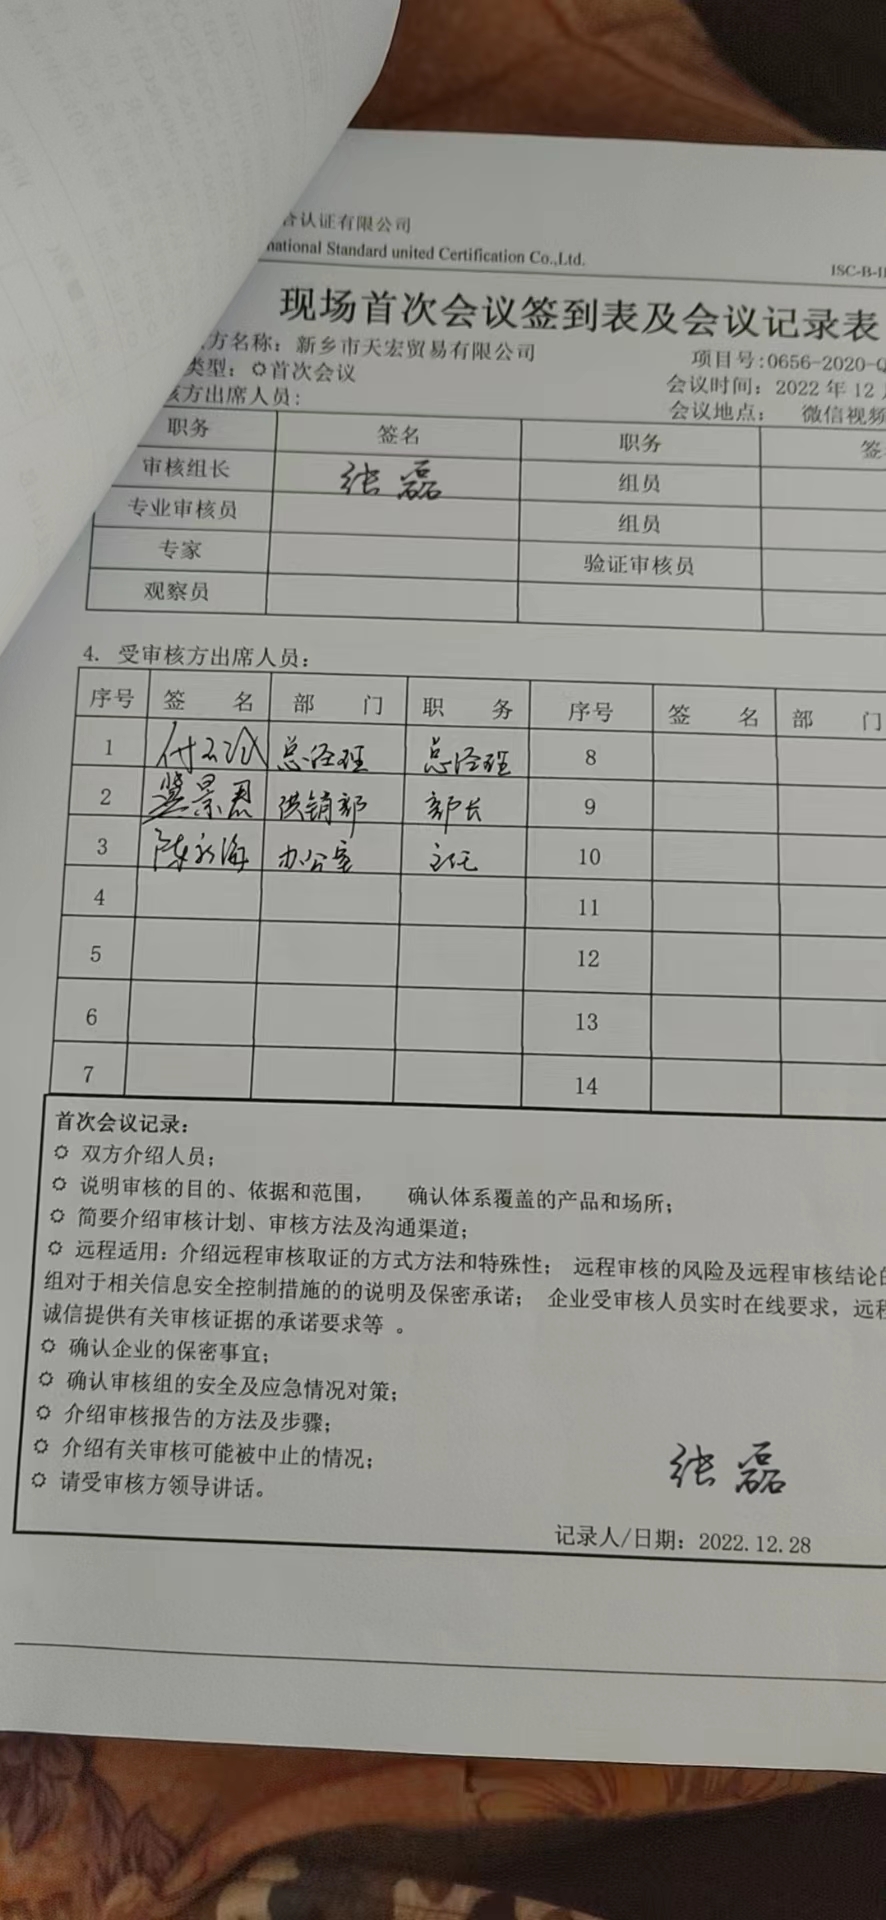 合认证有限公司
national Standard united Certification Co.,Ltd.
ISC-B-II
现场首次会议签到表及会议记录表
方名称：新乡市天宏贸易有限公司 项目号:0656-2020-Q
类型：首次会议 会议时间：2022 年 12 月
核方出席人员： 会议地点： 微信视频
职务 签名 职务 签
审核组长 张磊 组员
专业审核员 组员
专家 验证审核员
观察员
4. 受审核方出席人员：
序号 签 名 部 门 职 务 序号 签 名 部 门
1 总经理 总经理 8
2 冀景恩 供销部 部长 9
3 陈永海 办公室 主任 10
4 11
5 12
6 13
7 14
首次会议记录：
双方介绍人员；
说明审核的目的、依据和范围， 确认体系覆盖的产品和场所；
简要介绍审核计划、审核方法及沟通渠道；
远程适用：介绍远程审核取证的方式方法和特殊性； 远程审核的风险及远程审核结论的
组对于相关信息安全控制措施的的说明及保密承诺； 企业受审核人员实时在线要求，远程
诚信提供有关审核证据的承诺要求等 。
确认企业的保密事宜；
确认审核组的安全及应急情况对策；
介绍审核报告的方法及步骤；
介绍有关审核可能被中止的情况；
请受审核方领导讲话。
张磊
记录人/日期：2022.12.28